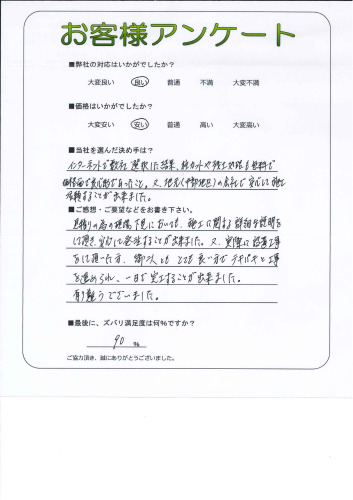 お客様アンケート
■弊社の対応はいかがでしたか?
大変良い 良い 普通 不満 大変不満
■価格はいかがでしたか?
大変安い 安い 普通 高い 大変高い
■当社を選んだ決め手は?
インターネットで数社選択した結果、
価格面で
することが出来ました。
■ご感想・ご要望などをお書き下さい。
見積りの為の現場下見においても、施工に関する詳細な説明を
して頂き、安心して発注することが出来ました。又、実際に設置工事
をして頂いた方、御二人も とても良い方で テキパキと工事
を進められ、一日で完工することが出来ました。
有り難うございました。
■最後に、ズバリ満足度は何%ですか?
90 %
ご協力頂き、誠にありがとうございました。